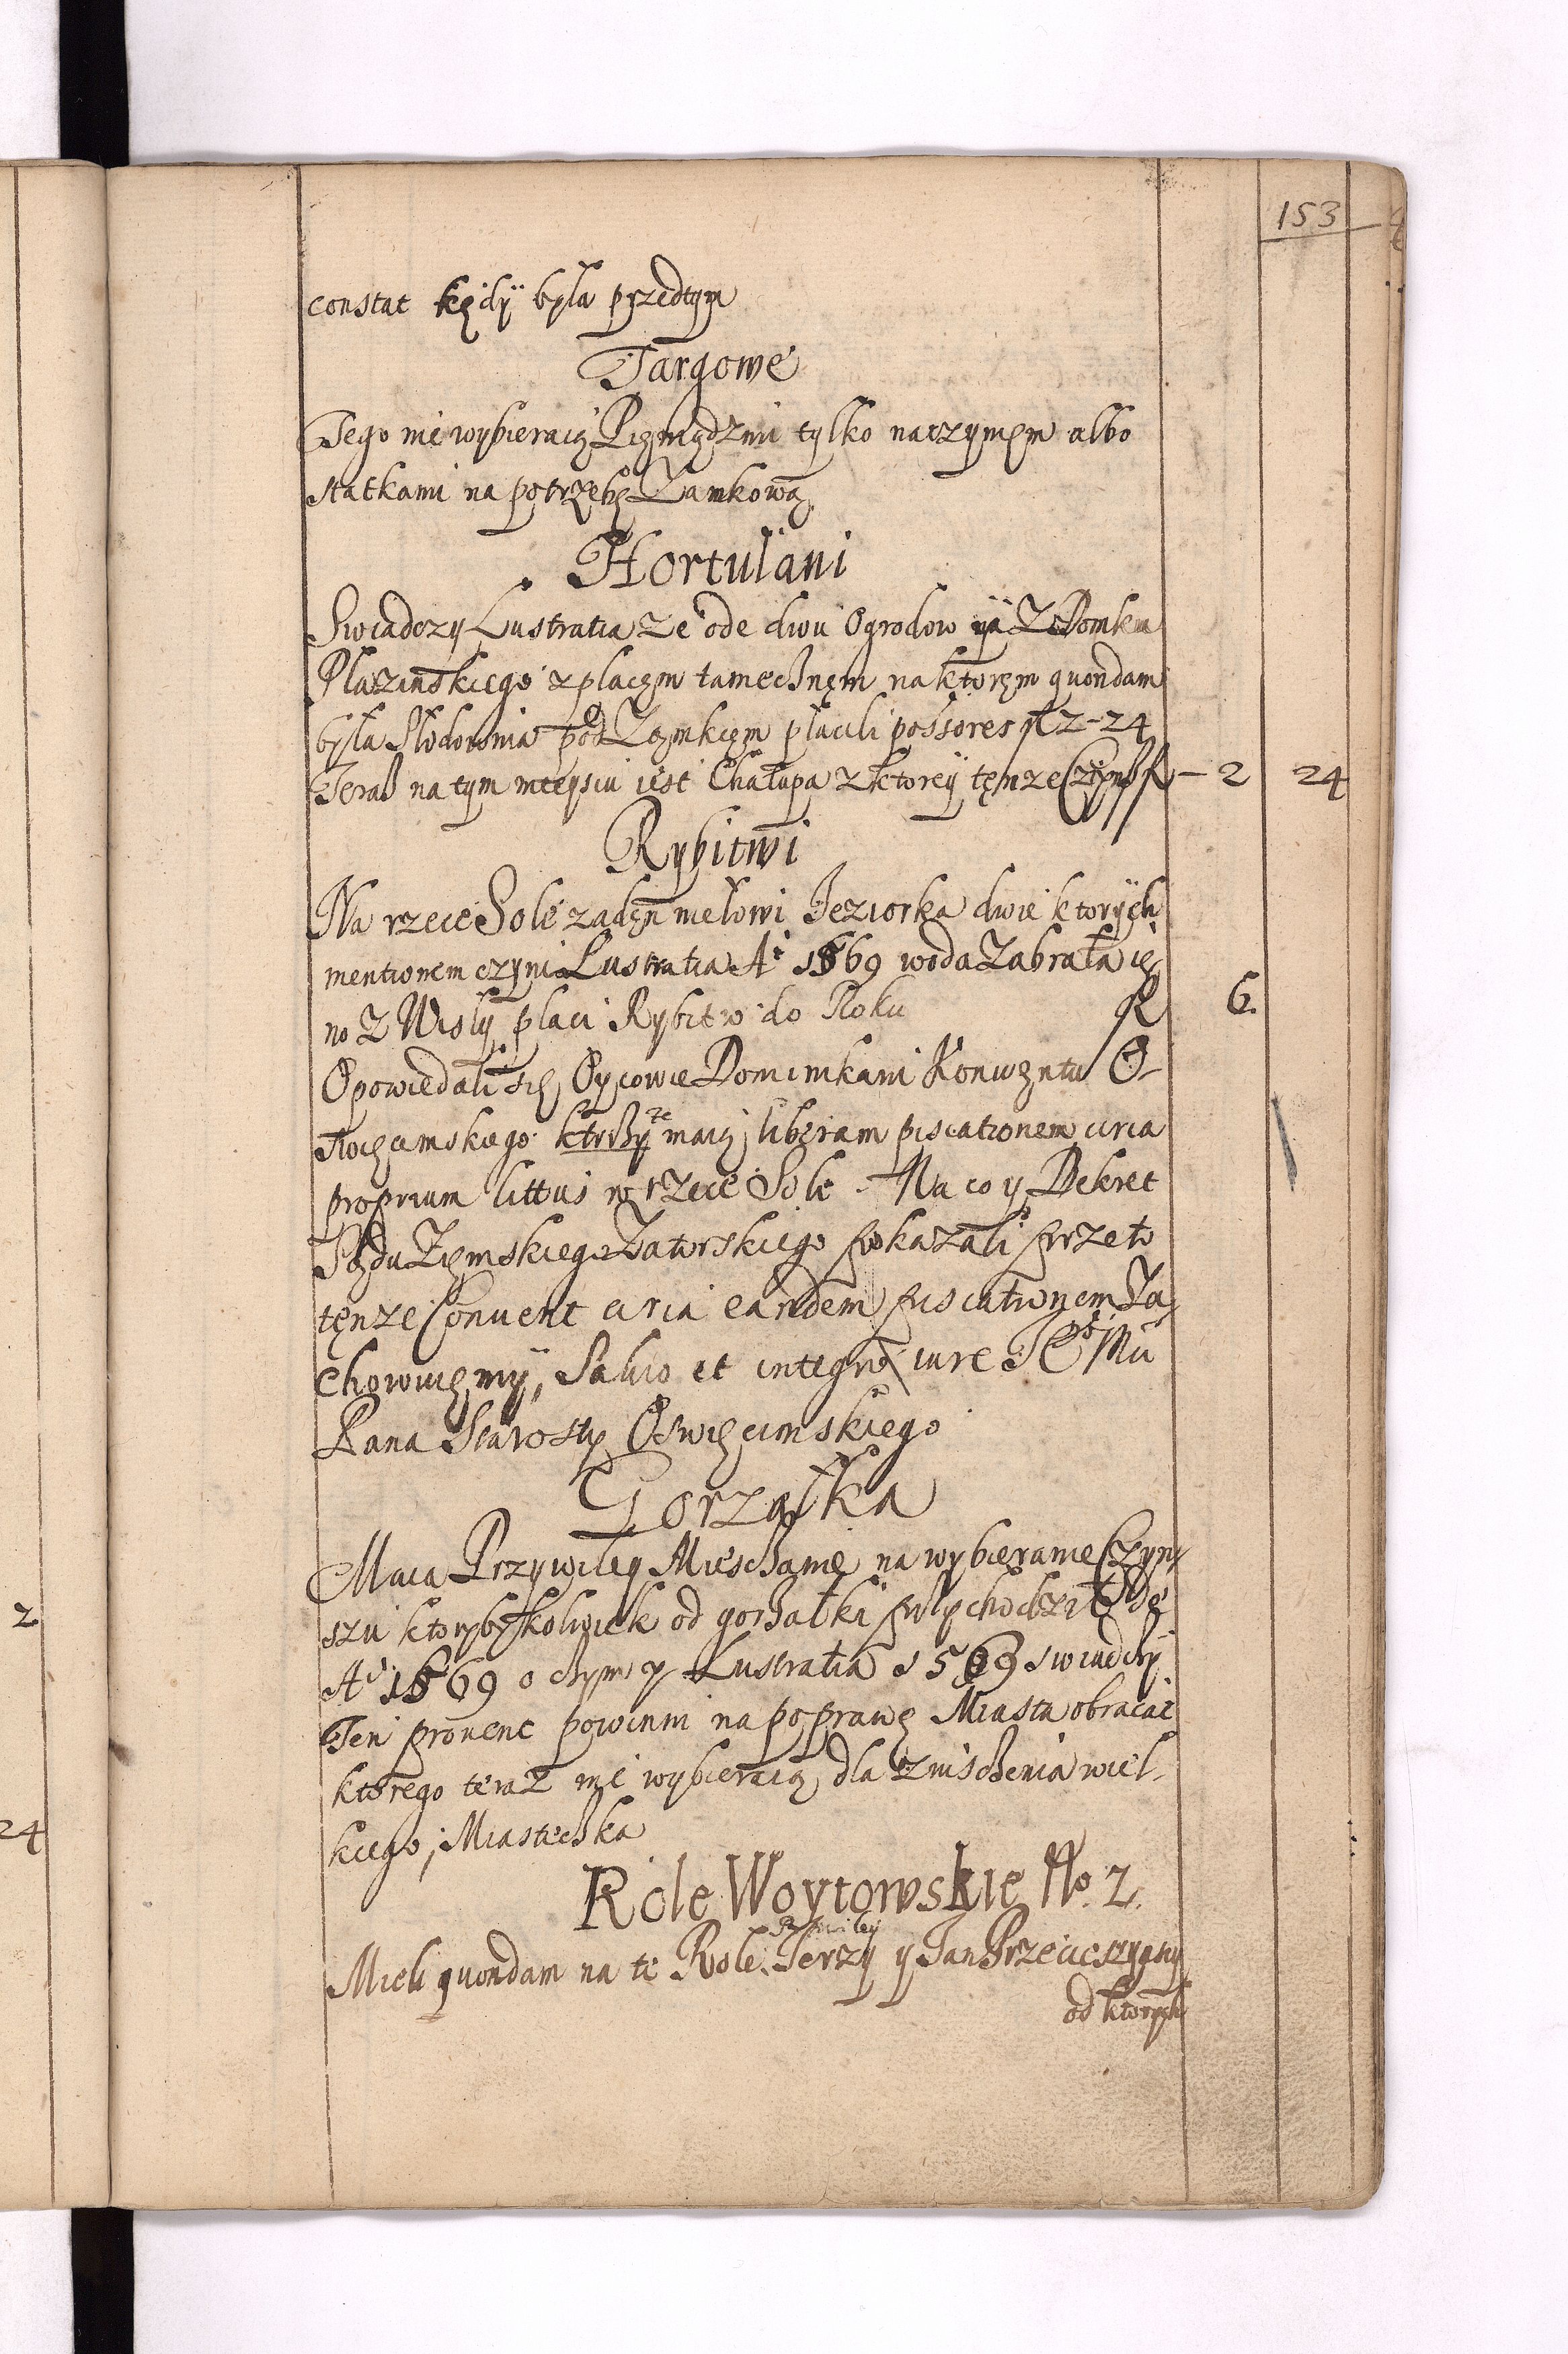 153
constat kędÿ była przedtym
Targowe
Tego nie wybieraią Pięniędzmi tylko naczyniem albo
statkami na potrzebę Zamkową
Hortulani
Swiadczy Lustratia ze ode dwu Ogrodow Z Domku
Płazinskiego z placęm tamecznęm na ktoręm quondam
była Słodownia pod Zamkięm płacili possores fl 2-24
Teraß na tym mieyscu iest Chałupa z ktorey tęnze Czynß fl – 2 24
Rybitwi
Na rzece Sole zadęn nie łowi Jeziorka dwie ktorÿch
mentionem czyni Lustratia Aº 1569 woda Zabrała ie
no Z Wisły płaci Rybitw do Roku fl 6.
Opowiedali się Oycowie Dominikani Konwęntu O-
swięcimskiego ktorzy ze maią liberam piscationem circa
proprium littus w rzece Sole. Na co y Dekret
Sądu Zięmskiego Zatorskiego pokazali przeto
tęnze Convent circa eandem piscationem Za
chowuięmÿ, Salvo et integro iure Mci
Pana Starosty Oswięcimskiego
Gorzałka
Maią Przywiley Miesczanie na wybieranie Czyn
szu ktorybykolwiek od gorzałki przychodził de
Aº 1569 o czym y Lustratia 1569 swiadczy
Ten provent powinni na poprawę Miasta obracać
ktorego teraz nie wybieraią dla znisczenia wiel-
kiego, Miasteczka
Role Woytowskie No. 2.
Przywiley
Mieli quondam na te Role Jerzy y Jan
od ktorych
2
24